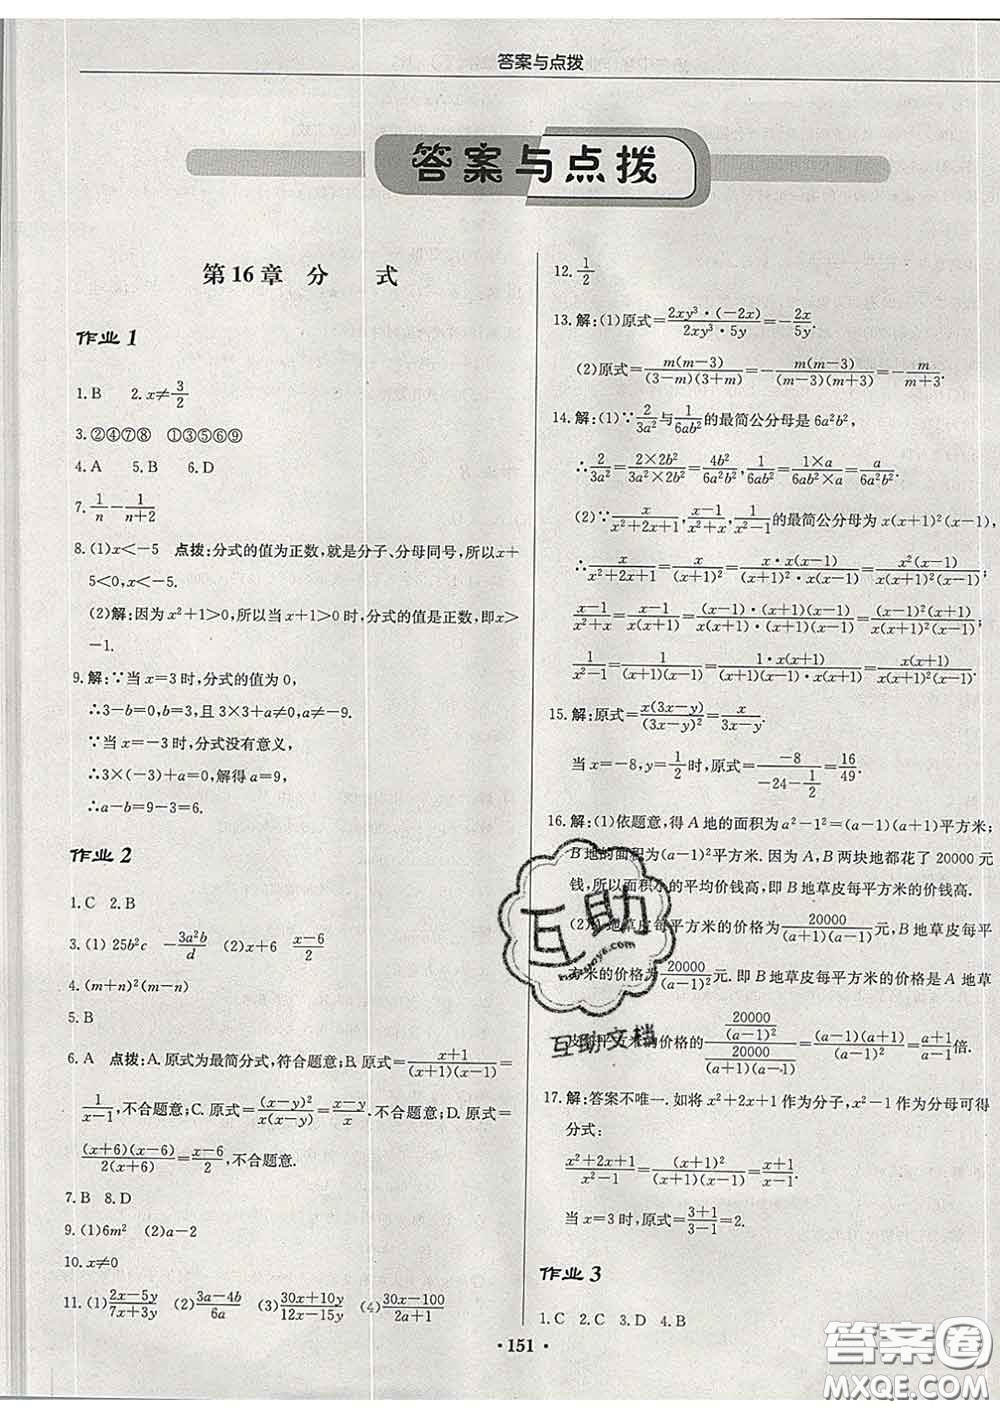 答案与点拨
答案与点拨
第16章 分 式
作业 1
1. B 2. x≠3/2
3. ②④⑦⑧ ①③⑤⑥⑨
4. A 5. B 6. D
7. 1/n－1/(n+2)
8. (1)x＜－5 点拨:分式的值为正数,就是分子、分母同号,所以x+
5＜0,x＜－5.
(2)解:因为x²+1＞0,所以当x+1＞0时,分式的值是正数,即x＞
－1.
9. 解:∵当x=3时,分式的值为0,
∴3－b=0,b=3,且3×3+a≠0,a≠－9.
∵当x=－3时,分式没有意义,
∴3×(－3)+a=0,解得a=9.
∴a－b=9－3=6.
作业 2
1. C 2. B
3. (1) 25b²c －3a²b/d (2)x+6 (x－6)/2
4. (m+n)²(m－n)
5. B
6. A 点拨:A. 原式为最简分式,符合题意;B. 原式=(x+1)/((x+1)(x－1))=
1/(x－1),不合题意;C. 原式=(x－y)²/(x(x－y))=(x－y)/x,不合题意;D. 原式=
((x+6)(x－6))/(2(x+6))=(x－6)/2,不合题意.
7. B 8. D
9. (1)6m² (2)a－2
10. x≠0
11. (1)(2x－5y)/(7x+3y) (2)(3a－4b)/6a (3)(30x+10y)/(12x－15y) (4)(30x－100)/(2a+1)
12. 1/2
13. 解:(1)原式=(2xy³·(－2x))/(2xy³·5y)=－2x/5y.
(2)原式=(m(m－3))/((3－m)(3+m))=－(m(m－3))/((m－3)(m+3))=－m/(m+3).
14. 解:(1)∵2/3a²与1/6ab²的最简公分母是6a²b²,
∴2/3a²=(2×2b²)/(3a²×2b²)=4b²/6a²b²,1/6ab²=(1×a)/(6ab²×a)=a/6a²b².
(2)∵x/(x²+2x+1),(x－1)/(x²+x),1/(x²－1)的最简公分母为x(x+1)²(x－1),
∴x/(x²+2x+1)=x/(x+1)²=(x·x(x－1))/((x+1)²·x(x－1))=(x²(x－1))/(x(x+1)²(x－1)),
(x－1)/(x²+x)=(x－1)/(x(x+1))=((x－1)·(x+1)(x－1))/(x(x+1)·(x+1)(x－1))=((x－1)²(x+1))/(x(x+1)²(x－1)),
1/(x²－1)=1/((x+1)(x－1))=(1·x(x+1))/((x+1)(x－1)·x(x+1))=(x(x+1))/(x(x+1)²(x－1)).
15. 解:原式=(x(3x－y))/(3x－y)²=x/(3x－y).
当x=－8,y=1/2时,原式=－8/(－24－1/2)=16/49.
16. 解:(1)依题意,得A地的面积为a²－1²=(a－1)(a+1)平方米;
B地的面积为(a－1)²平方米. 因为A,B两块地都花了20000元
钱,所以面积小的平均价钱高,即B地草皮每平方米的价钱高.
(2)A地草皮每平方米的价格为20000/((a+1)(a－1))元,B地草皮每平
方米的价格为20000/(a－1)²元. 即B地草皮每平方米的价格是A地草
皮每平方米的价格的(20000/(a－1)²)/(20000/((a+1)(a－1)))=((a－1)(a+1))/(a－1)²=(a+1)/(a－1)倍.
17. 解:答案不唯一. 如将x²+2x+1作为分子,x²－1作为分母可得
分式:
(x²+2x+1)/(x²－1)=(x+1)²/((x+1)(x－1))=(x+1)/(x－1).
当x=3时,原式=(3+1)/(3－1)=2.
作业 3
1. C 2. C 3. D 4. B
·151·
互助
互助文档
答案圈
MXQE.COM